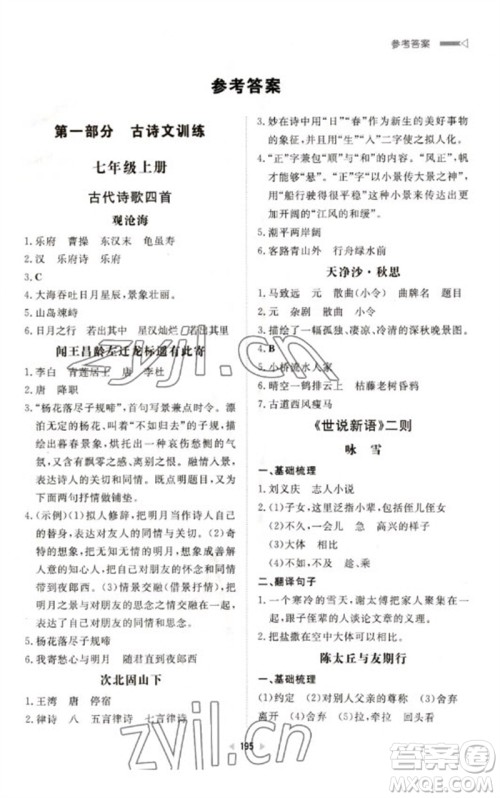 参考答案
参考答案
第一部分 古诗文训练
七年级上册
古代诗歌四首
观沧海
1. 乐府 曹操 东汉末 龟虽寿
2. 汉 乐府诗 乐府
3. C
4. 大海吞吐日月星辰,壮丽。
5. 山岛竦峙
6. 日月之行 若出其中 星汉灿烂 若出其里
闻王昌龄左迁龙标遥有此寄
1. 李白 青莲居士 唐 李杜
2. 唐 降职
3. “杨花落尽子规啼”,首句写景兼点时令。漂泊无定的杨花,叫着“不如归去”的子规,描绘出暮春景象,烘托出一种哀伤愁恻的气氛,含有飘零之感、离别之恨。融情入景,为下面两句抒情做铺垫。
4. (示例)(1)拟人修辞,把明月当作自己的替身,对朋友的同情与关心。(2)奇特的想象,把无知无情的明月想象成一个善解人意的知心人,把诗人的思念和同情带到那夜郎以西。(3)情景交融(借景抒情):将自己对友人的思念和同情带到那夜郎以西。(3)情景交融
5. 杨花落尽子规啼
6. 我寄愁心与明月 随君直到夜郎西
次北固山下
1. 王湾 唐 停宿
2. 律诗 八 五言律诗 七言律诗
3. 妙在诗中用“日”“春”作为新生的美好事物的象征,并且用“生”“入”使之拟人化。
4. “正”字兼包“顺”和“和”的内容。“风正”,帆才会“悬”。“正”字的绝妙还在于,它能用“船行驶得很平稳”这一小景来传达出更加开阔的“江风的和缓”
5. 潮平两岸阔
6. 客路青山外 行舟绿水前
天净沙·秋思
1. 马致远 元 散曲(小令) 曲牌名 题目
2. 元 散曲 小令
3. 描绘了一幅孤寂、凄凉、冷清的深秋晚景图。
4. B
5. 小桥流水人家
6. 晴空一鹤排云上 枯藤老树昏鸦
7. 古道西风瘦马
《世说新语》二则
咏 雪
一、基础梳理
1. 刘义庆 志人小说
2. (1)子女,这里泛指小辈,包括侄儿侄女
(2)不久,一会儿 急 高兴的样子
(3)大体 相比
(4)不如 趁、乘
二、翻译句子
1. 一个寒冷的雪天,谢太傅把家人聚集在一起,跟子侄辈谈论诗文。
2. 把盐撒在空中大体可以相比。
陈太丘与友期行
一、基础梳理
(1)约定 (2)对别人父亲的尊称 (3)舍弃 离开 (4)感到惭愧 牵拉 回头看
195